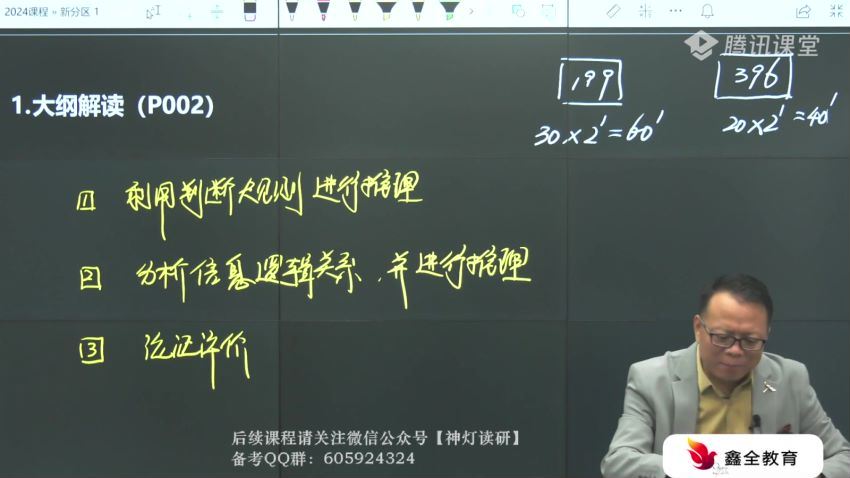 2024课程 » 新分区 1
腾讯课堂
199
396
30×2'=60'
20×2'=40'
1.大纲解读（P002）
1 利用判断规则进行推理
2 分析信息逻辑关系，并进行推理
3 论证评价
后续课程请关注微信公众号【神灯读研】
备考QQ群：605924324
鑫全教育